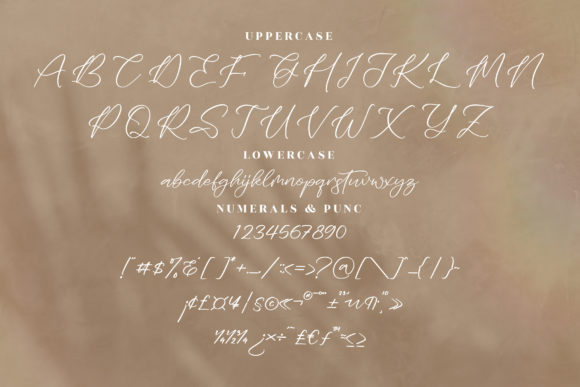 UPPERCASE
A B C D E F G H I J K L M N
P Q R S T U V W X Y Z
LOWERCASE
abcdefghijklmnopqrstuvwxyz
NUMERALS & PUNC
1234567890
!"#$%&[]*+—/:<=>?@[\]^_{|}~